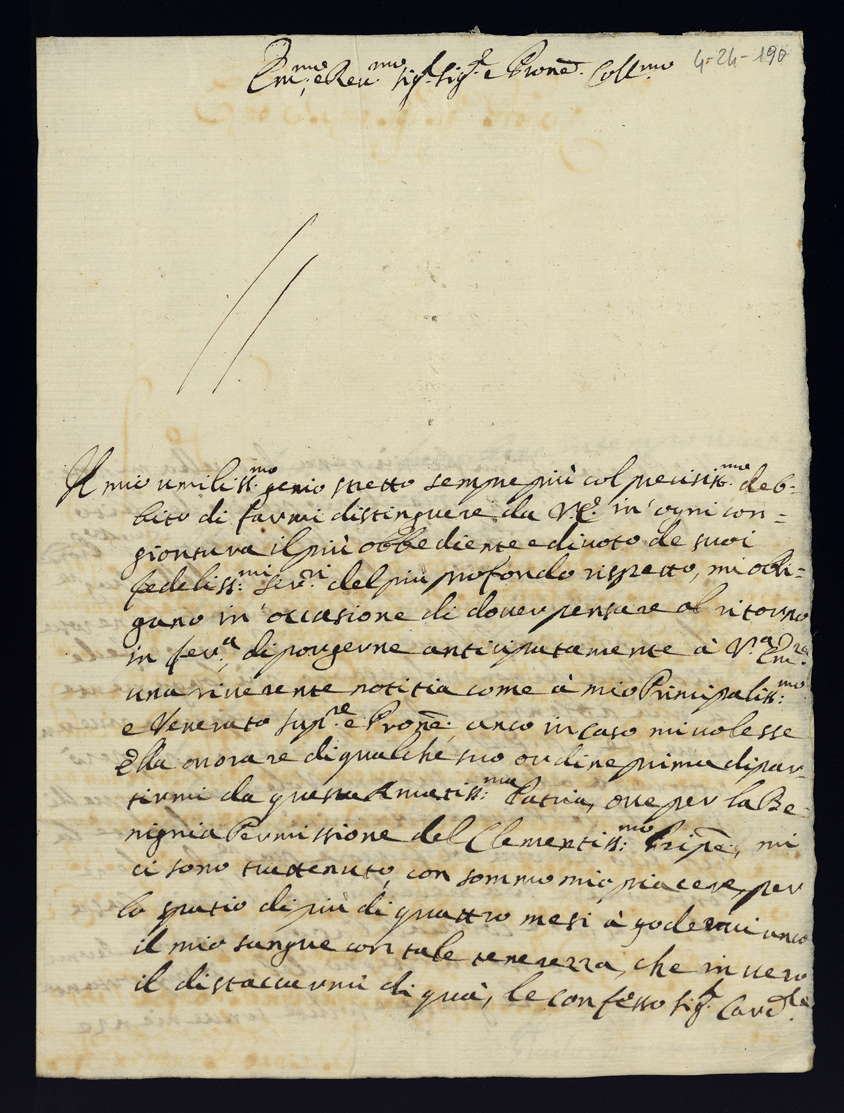 Em.mo e Rev.mo Sig.r Sig.r e Pron̄e Coll.mo
4-24-190
Il mio umiliss.mo genio stretto sempre più col precisiss.mo deb-
bito di farmi distinguere da V.E. in ogni con=
giontura il più obbediente e divoto de suoi
fedeliss.mi Ser.ri del più profondo rispetto, mi obli=
gano in occasione di dover pensare al ritorno
in ferª, di porgerne anticipatamente à V.ª Em.za
una riverente notitia come à mio Principaliss.mo
e Venerato Sup.re e Pron̄e, anco in caso mi volesse
Ella onorare di qualche suo ordine prima di par-
tirmi da questa Amatiss.ma Patria, ove per la Be-
nignia Permissione del Clementiss.mo Pripē, mi
ci sono trattenuto, con sommo mio piacere, per
lo spatio di più di quattro mesi à godermi anco
il mio sangue con tale tenerezza, che in vero
il distaccarmi di quà, le confesso Sig.r Card.le